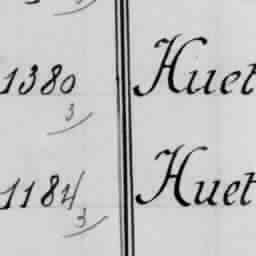 1380 Huet
3
1184 Huet
3